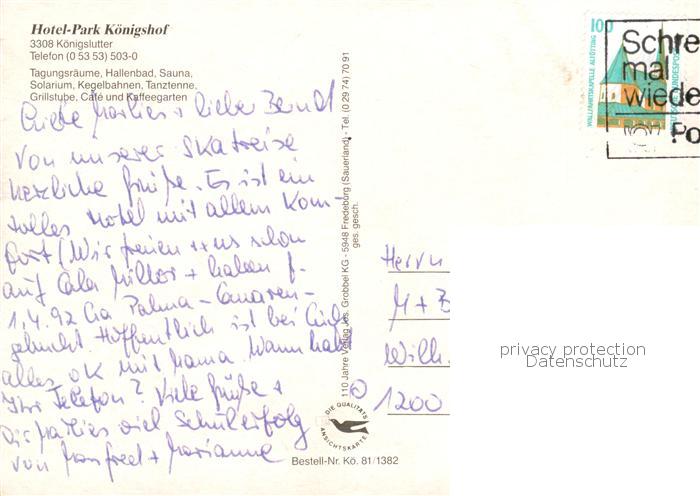 Hotel-Park Königshof
3308 Königslutter
Telefon (0 53 53) 503-0
Tagungsräume, Hallenbad, Sauna,
Solarium, Kegelbahnen, Tanztenne,
Grillstube, Café und Kaffeegarten
Liebe Marlies + lieber Bernd!
Von unserer Skatreise
herzliche Grüße. Es ist ein
tolles Hotel mit allem Kom-
fort (Wir freuen uns schon
auf Cala Millor + haben f.
1.4.92 Cia Palma - Canaren -
gebucht Hoffentlich ist bei Euch
alles OK mit Mama. Wann habt
Ihr Telefon? Viele Grüße +
Dir Marlies viel Schulerfolg
von Manfred + Marianne
110 Jahre Verlag Jos. Grobbel KG - 5948 Fredeburg (Sauerland) - Tel. (0 29 74) 70 91
ges. gesch.
DIE QUALITÄTS
ANSICHTSKARTE
Bestell-Nr. Kö. 81/1382
100
WALLFAHRTSKAPELLE ALTÖTTING
DEUTSCHE BUNDESPOST
Schre
mal
wiede
Po
Herrn
M + B
Wilh.
1200
privacy protection
Datenschutz